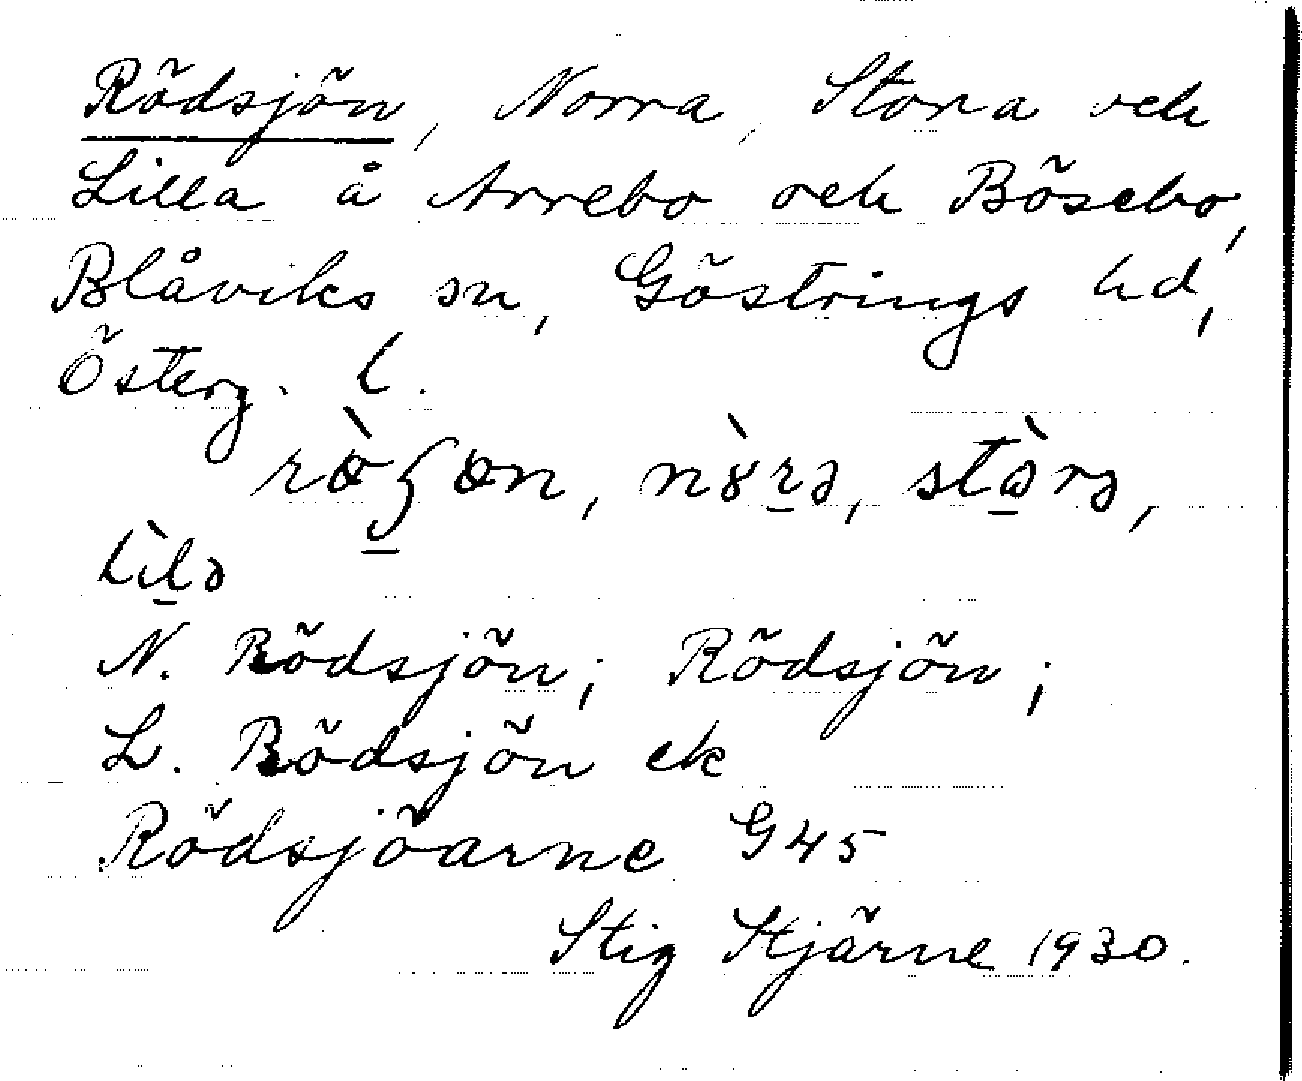 Rödsjön, Norra, Stora och
Lilla å Arrebo och Bösebo,
Blåviks sn, Göstrings hd,
Österg. l.
N. Rödsjön; Rödsjön;
L. Rödsjön ek
Rödsjöarne G45
Stig Stjärne 1930.